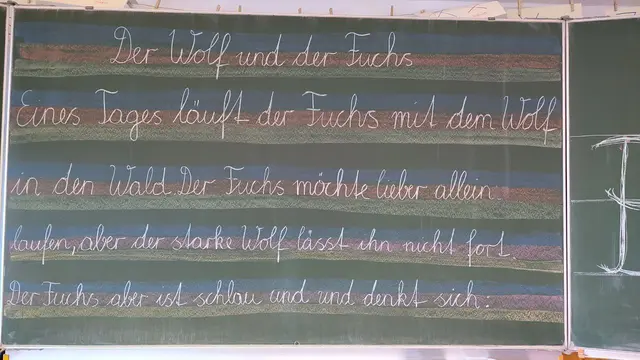 Der Wolf und der Fuchs
Eines Tages läuft der Fuchs mit dem Wolf
in den Wald. Der Fuchs möchte lieber allein
laufen, aber der starke Wolf lässt ihn nicht fort.
Der Fuchs aber ist schlau und und denkt sich: